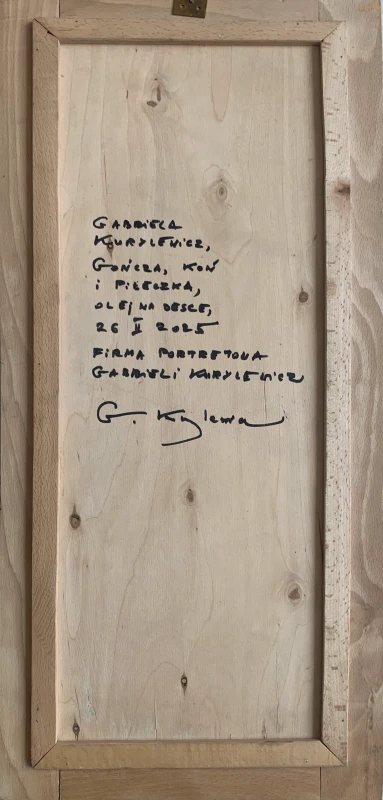 GABRIELA
KURYLEWICZ,
GOŃCZA, KOŃ
I PIŁECZKA,
OLEJ NA DESCE,
26 II 2025
FIRMA PORTRETOWA
GABRIELI KURYLEWICZ
G. Kurylewicz